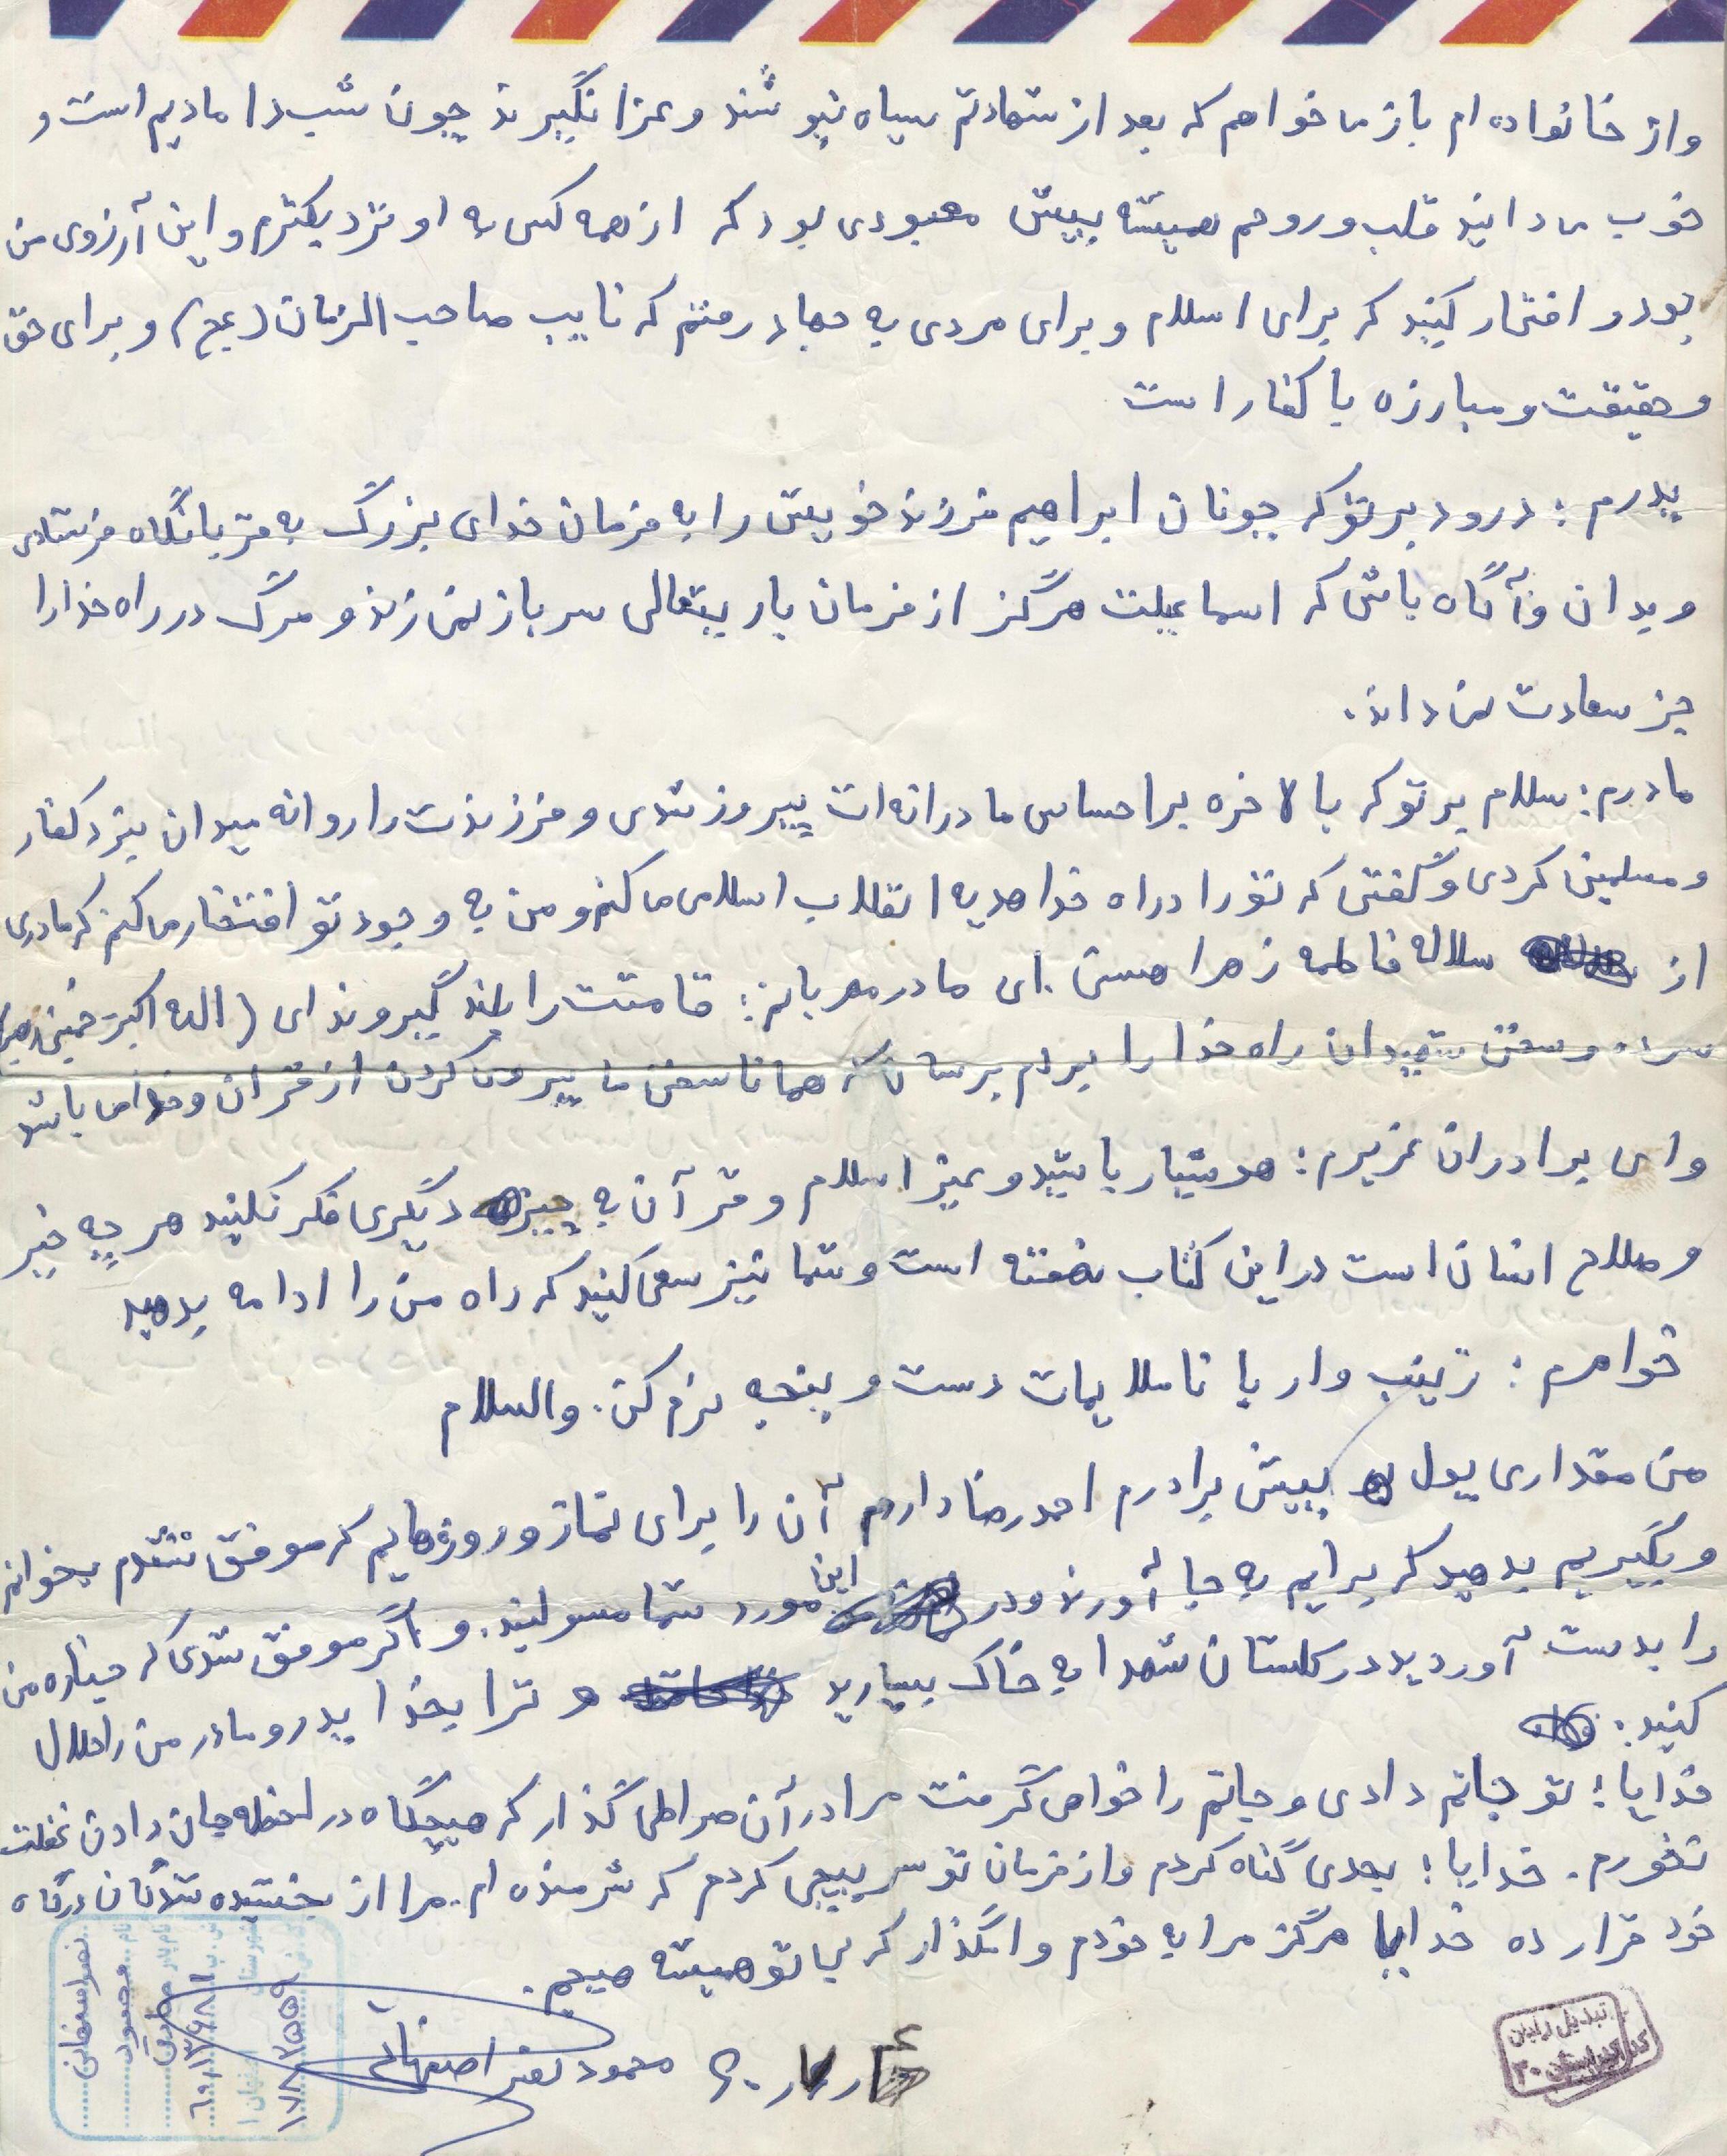 و از خانواده ام باز می خواهم که بعد از شهادتم سیاه نپوشند و عزا نگیرند چون شب دامادیم است و
خوب می دانید قلب و روحم همیشه پیش معبودی بود که از همه کس به او نزدیکترم و این آرزوی من
بود و افتخار کنید که برای اسلام و برای مردی به جهاد رفتم که نایب صاحب الزمان (عج) و برای حق
و حقیقت و مبارزه با کفار است
پدرم : درود بر تو که چونان ابراهیم فرزند خویش را به فرمان خدای بزرگ به قربانگاه فرستادی
و بدان و آگاه باش که اسماعیلت هرگز از فرمان باریتعالی سر باز نمی زند و مرگ در راه خدا را
جز سعادت نمی داند.
مادرم : سلام بر تو که بالاخره بر احساس مادرانه ات پیروز شدی و فرزندت را روانه میدان نبرد کفار
و مسلمین کردی و گفتی که تو را در راه خدا هدیه انقلاب اسلامی می کنم و من به وجود تو افتخار می کنم که مادری
از سلاله فاطمه زهرا هستی . ای مادر مهربانم : قامتت را بلند گیر و ندای (الله اکبر خمینی رهبر)
سر ده و سخن شهیدان راه خدا را بمردم برسان که همانا سخن ما پیروی کردن از قران و خدا می باشد
و ای برادران عزیزم : هوشیار باشید و بغیر اسلام و قرآن به چیز دیگری فکر نکنید هر چه خیر
و صلاح انسان است در این کتاب نهفته است و شما نیز سعی کنید که راه من را ادامه بدهید
خواهرم : زینب وار با ناملایمات دست و پنجه نرم کن . والسلام
من مقداری پول پیش برادرم احمدرضا دارم آن را برای نماز و روزهایم که موفق نشدم بخوانم
و بگیریم بدهید که برایم به جا آورند و در این مورد شما مسولید . و اگر موفق شدی که جنازه من
را بدست آوردید در گلستان شهدا به خاک بسپارید و ترا بخدا پدر و مادر من را حلال
کنید .
خدایا ؛ تو جانم دادی و جانم را خواهی گرفت مرا در آن صراطی گذار که هیچگاه در لحظه جان دادن غفلت
نخورم . خدایا ؛ بحدی گناه کردم و از فرمان تو سرپیچی کردم که شرمنده ام . مرا از بخشیده شدگان درگاه
خود قرار ده خدایا هرگز مرا به خودم وامگذار که بی تو همیشه هیچم .
محمود نصر اصفهانی
نصر اصفهانی
نام محمود
۱۷۸۰۳۵۵۹